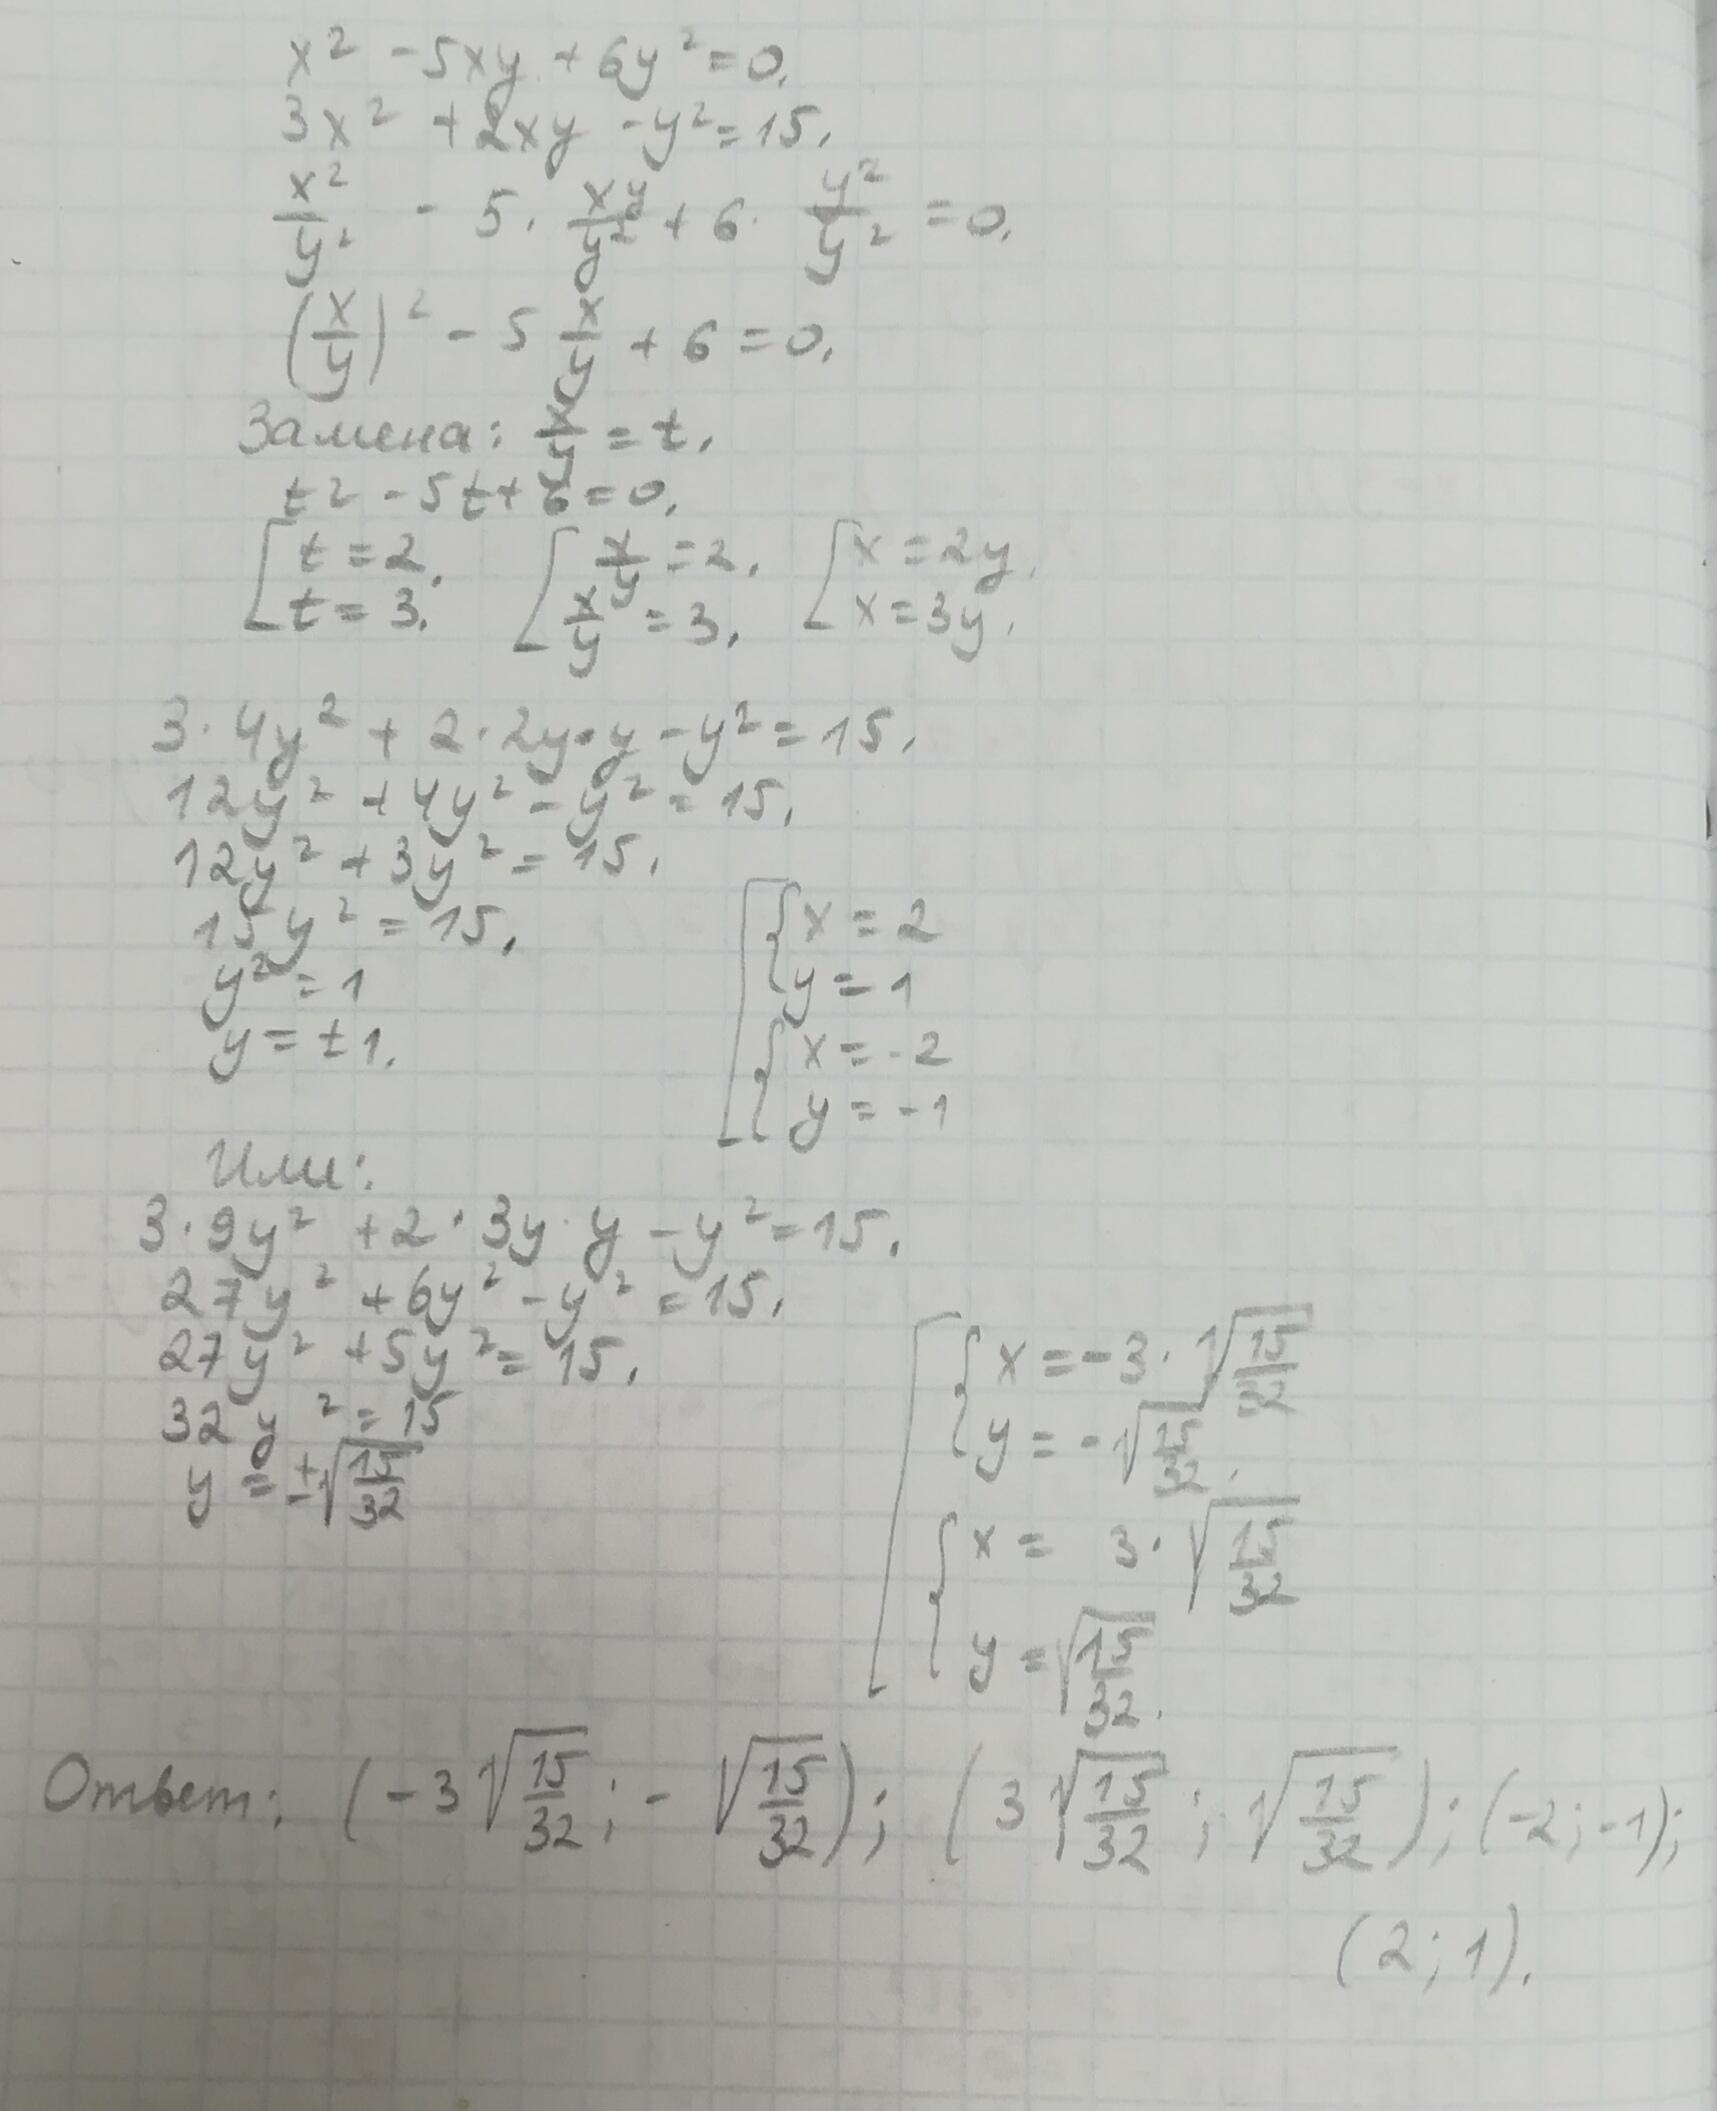 x² - 5xy + 6y² = 0.
3x² + 2xy - y² = 15.
x²/y² - 5 · xy/y² + 6 · y²/y² = 0.
(x/y)² - 5 x/y + 6 = 0.
Замена: x/y = t.
t² - 5t + 6 = 0.
[ t = 2. [ x/y = 2. [ x = 2y.
t = 3. x/y = 3. x = 3y.
3 · 4y² + 2 · 2y · y - y² = 15.
12y² + 4y² - y² = 15.
12y² + 3y² = 15.
15y² = 15.
y² = 1
y = ±1.
[ { x = 2
y = 1
{ x = -2
y = -1
Или:
3 · 9y² + 2 · 3y · y - y² = 15.
27y² + 6y² - y² = 15.
27y² + 5y² = 15.
32y² = 15
y = ±√(15/32)
[ { x = -3 · √(15/32)
y = -√(15/32).
{ x = 3 · √(15/32)
y = √(15/32).
Ответ: (-3√(15/32); -√(15/32)); (3√(15/32); √(15/32)); (-2; -1);
(2; 1).